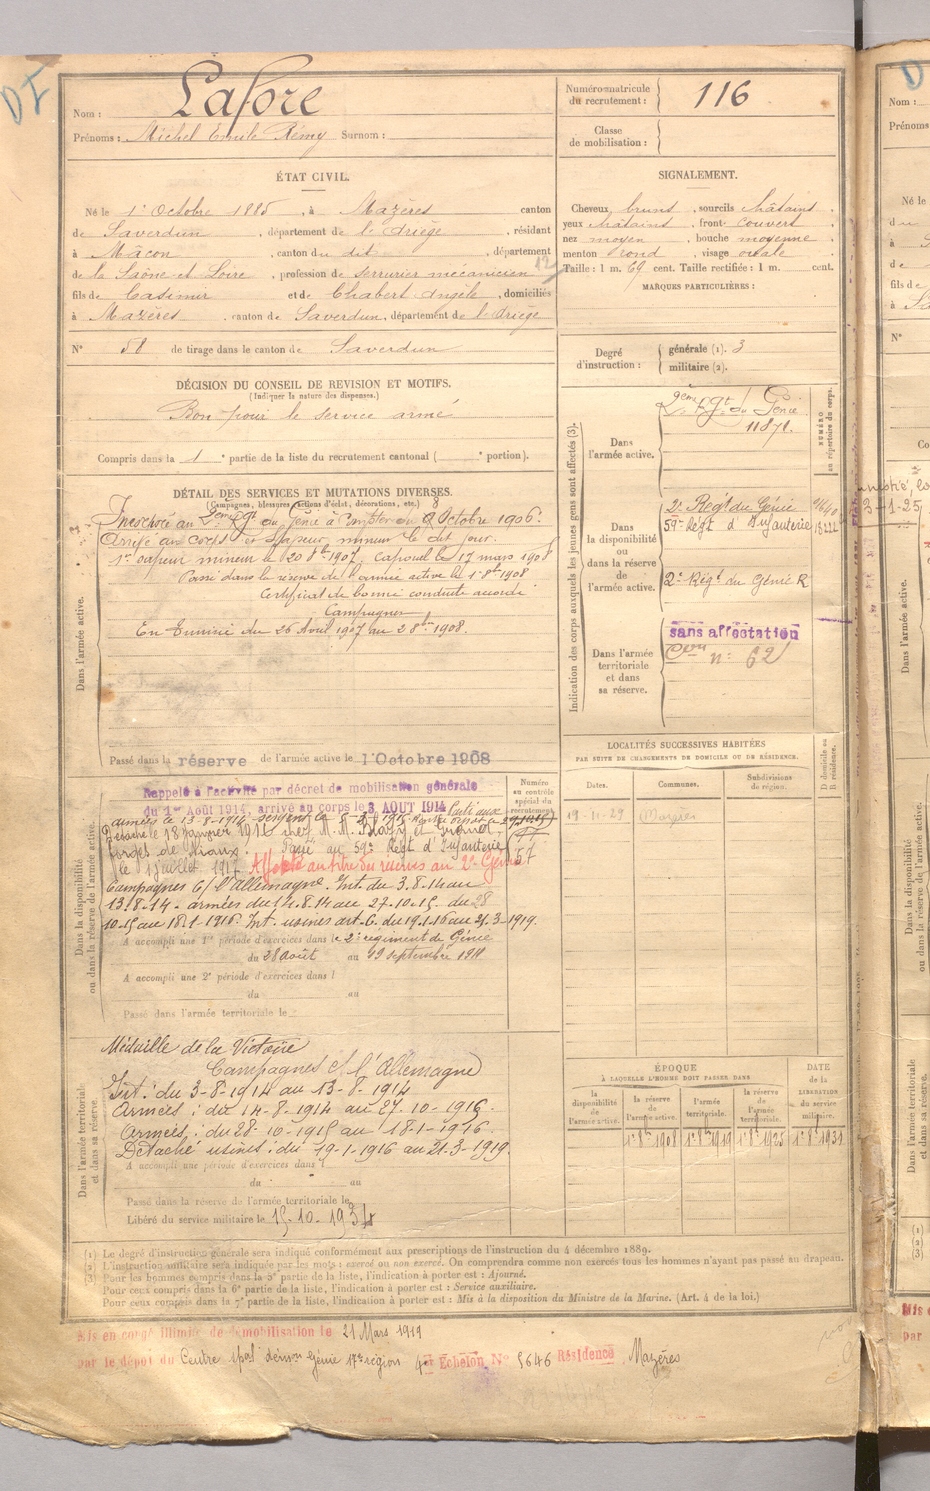 DI
Nom : Lafore
Prénoms : Michel Emile Rémy Surnom :
Numéro matricule du recrutement : 116
Classe de mobilisation :
ÉTAT CIVIL.
Né le 1er Octobre 1885, à Mazères canton
de Saverdun, département de l'Ariège, résidant
à Mâcon, canton du dit, département
de la Saône et Loire, profession de serrurier mécanicien
fils de Casimir et de Chabert Angèle, domiciliés
à Mazères, canton de Saverdun, département de l'Ariège
N° 58 de tirage dans le canton de Saverdun
SIGNALEMENT.
Cheveux bruns, sourcils châtains
yeux châtains, front couvert
nez moyen, bouche moyenne
menton rond, visage ovale
Taille : 1 m. 69 cent. Taille rectifiée : 1 m. cent.
MARQUES PARTICULIÈRES :
Degré d'instruction : générale (1). 3
militaire (2).
DÉCISION DU CONSEIL DE REVISION ET MOTIFS.
(Indiquer la nature des dispenses.)
Bon pour le service armé
Compris dans la 1e partie de la liste du recrutement cantonal ( e portion).
DÉTAIL DES SERVICES ET MUTATIONS DIVERSES.
(Campagnes, blessures, actions d'éclat, décorations, etc.)
Incorporé au 2ème Rgt du Génie à compter du 8 Octobre 1906.
Arrivé au corps et sapeur mineur le dit jour.
1er sapeur mineur le 20 8bre 1907, Caporal le 17 mars 1908
Passé dans la réserve de l'armée active le 1er 8bre 1908
Certificat de bonne conduite accordé
Campagnes
En Tunisie du 26 Avril 1907 au 28 1908.
Dans l'armée active.
Passé dans la réserve de l'armée active le 1er Octobre 1908
Indication des corps auxquels les jeunes gens sont affectés (3).
NUMÉRO au répertoire du corps.
Dans l'armée active.
2ème Rgt du Génie
11871.
Dans la disponibilité ou dans la réserve de l'armée active.
2e Régt du Génie
59e Régt d'Infanterie
2e Régt du Génie R
Dans l'armée territoriale et dans sa réserve.
sans affectation
n° 62
LOCALITÉS SUCCESSIVES HABITÉES
PAR SUITE DE CHANGEMENTS DE DOMICILE OU DE RÉSIDENCE.
Dates. Communes. Subdivisions de région. D domicile ou R résidence.
19-11-29 Mazères
Dans la disponibilité ou dans la réserve de l'armée active.
Numéro au contrôle spécial du recrutement
Rappelé à l'activité par décret de mobilisation générale
du 1er Août 1914, arrivé au corps le 3 AOUT 1914 Parti aux
armées le 13-8-1914
Détaché le 18 Janvier 1916 chez M.M.
forges de Passé au 59e Régt d'Infanterie
le 1 juillet 1917 Affecté au titre du réunis au 2e Génie
Campagnes C/ l'Allemagne. Int. du 3.8.14 au
13.8.14 - armées du 14.8.14 au 27-10-15. du 28
10.15 au 18.1.1916. Int. usines art. 6. du 19.1.16 au 21.3-1919.
A accompli une 1re période d'exercices dans le 2e régiment de Génie
du 28 août au 19 septembre 1911
A accompli une 2e période d'exercices dans l
du au
Passé dans l'armée territoriale le
Dans l'armée territoriale et dans sa réserve.
Médaille de la Victoire
Campagnes C/ l'Allemagne
Int : du 3-8-1914 au 13-8-1914
Armées : du 14-8-1914 au 27-10-1916.
Armées : du 28-10-1915 au 18-1-1916.
Détaché usines : du 19-1-1916 au 21-3-1919.
A accompli une période d'exercices dans l
du au
Passé dans la réserve de l'armée territoriale le
Libéré du service militaire le 15-10-1934
ÉPOQUE
À LAQUELLE L'HOMME DOIT PASSER DANS
la disponibilité de l'armée active.
la réserve de l'armée active. 1er 8bre 1908
l'armée territoriale. 1er 8bre 1919
la réserve de l'armée territoriale. 1er 8bre 1925
DATE de la LIBÉRATION du service militaire. 1er 8bre 1931
(1) Le degré d'instruction générale sera indiqué conformément aux prescriptions de l'instruction du 4 décembre 1889.
(2) L'instruction militaire sera indiquée par les mots : exercé ou non exercé. On comprendra comme non exercés tous les hommes n'ayant pas passé au drapeau.
(3) Pour les hommes compris dans la 5e partie de la liste, l'indication à porter est : Ajourné.
Pour ceux compris dans la 6e partie de la liste, l'indication à porter est : Service auxiliaire.
Pour ceux compris dans la 7e partie de la liste, l'indication à porter est : Mis à la disposition du Ministre de la Marine. (Art. 4 de la loi.)
Mis en congé illimité de démobilisation le 21 Mars 1919
par le dépôt du Centre spal démon Génie 17e région 4e Echelon N° 5646 Résidence Mazères